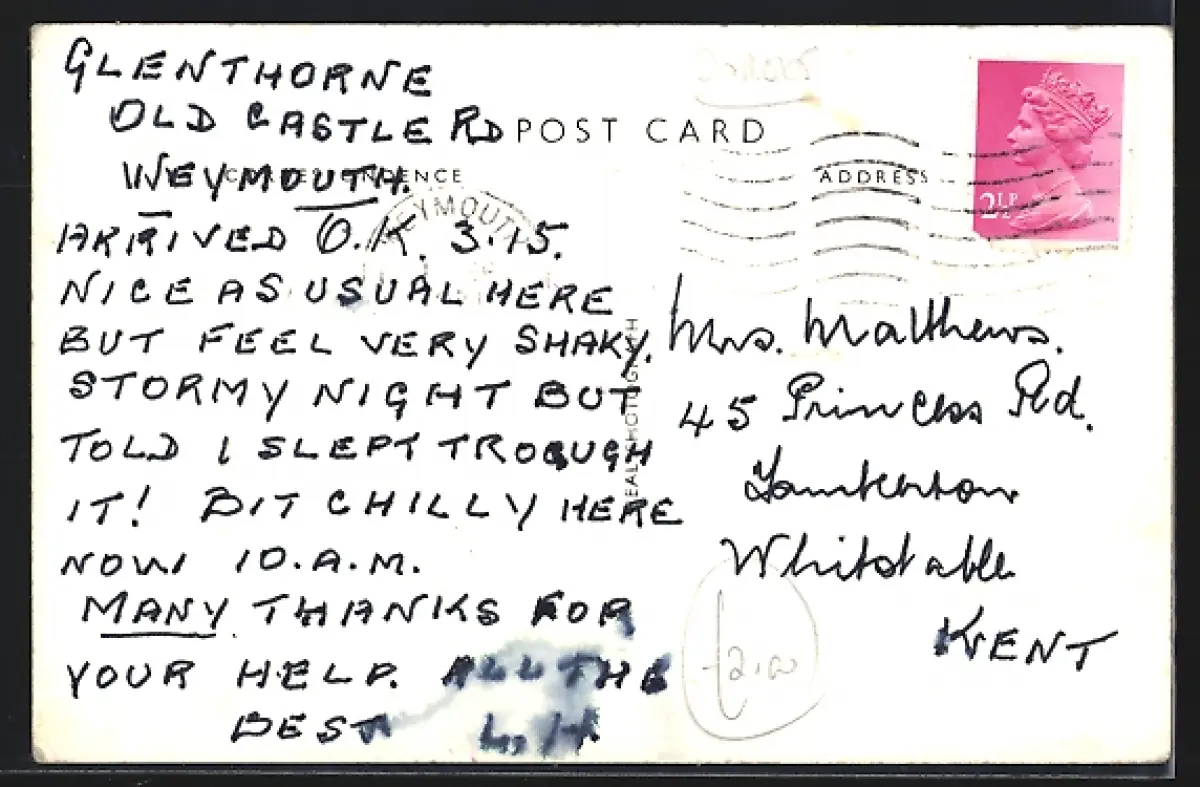 GLENTHORNE
OLD CASTLE RD
WEYMOUTH.
ARRIVED O.K. 3.15.
NICE AS USUAL HERE
BUT FEEL VERY SHAKY.
STORMY NIGHT BUT
TOLD I SLEPT TROOUGH
IT! BIT CHILLY HERE
NOW 10.A.M.
MANY THANKS FOR
YOUR HELP. ALL THE
BEST
POST CARD
ADDRESS
WEYMOUTH
2½P
Mrs. Matthews.
45 Princess Rd.
Tankerton
Whitstable
KENT
£2.00